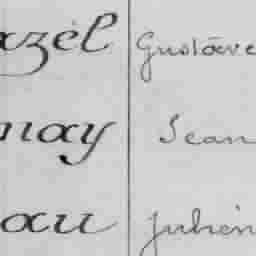 azél Gustave
nay Jean
au Julien